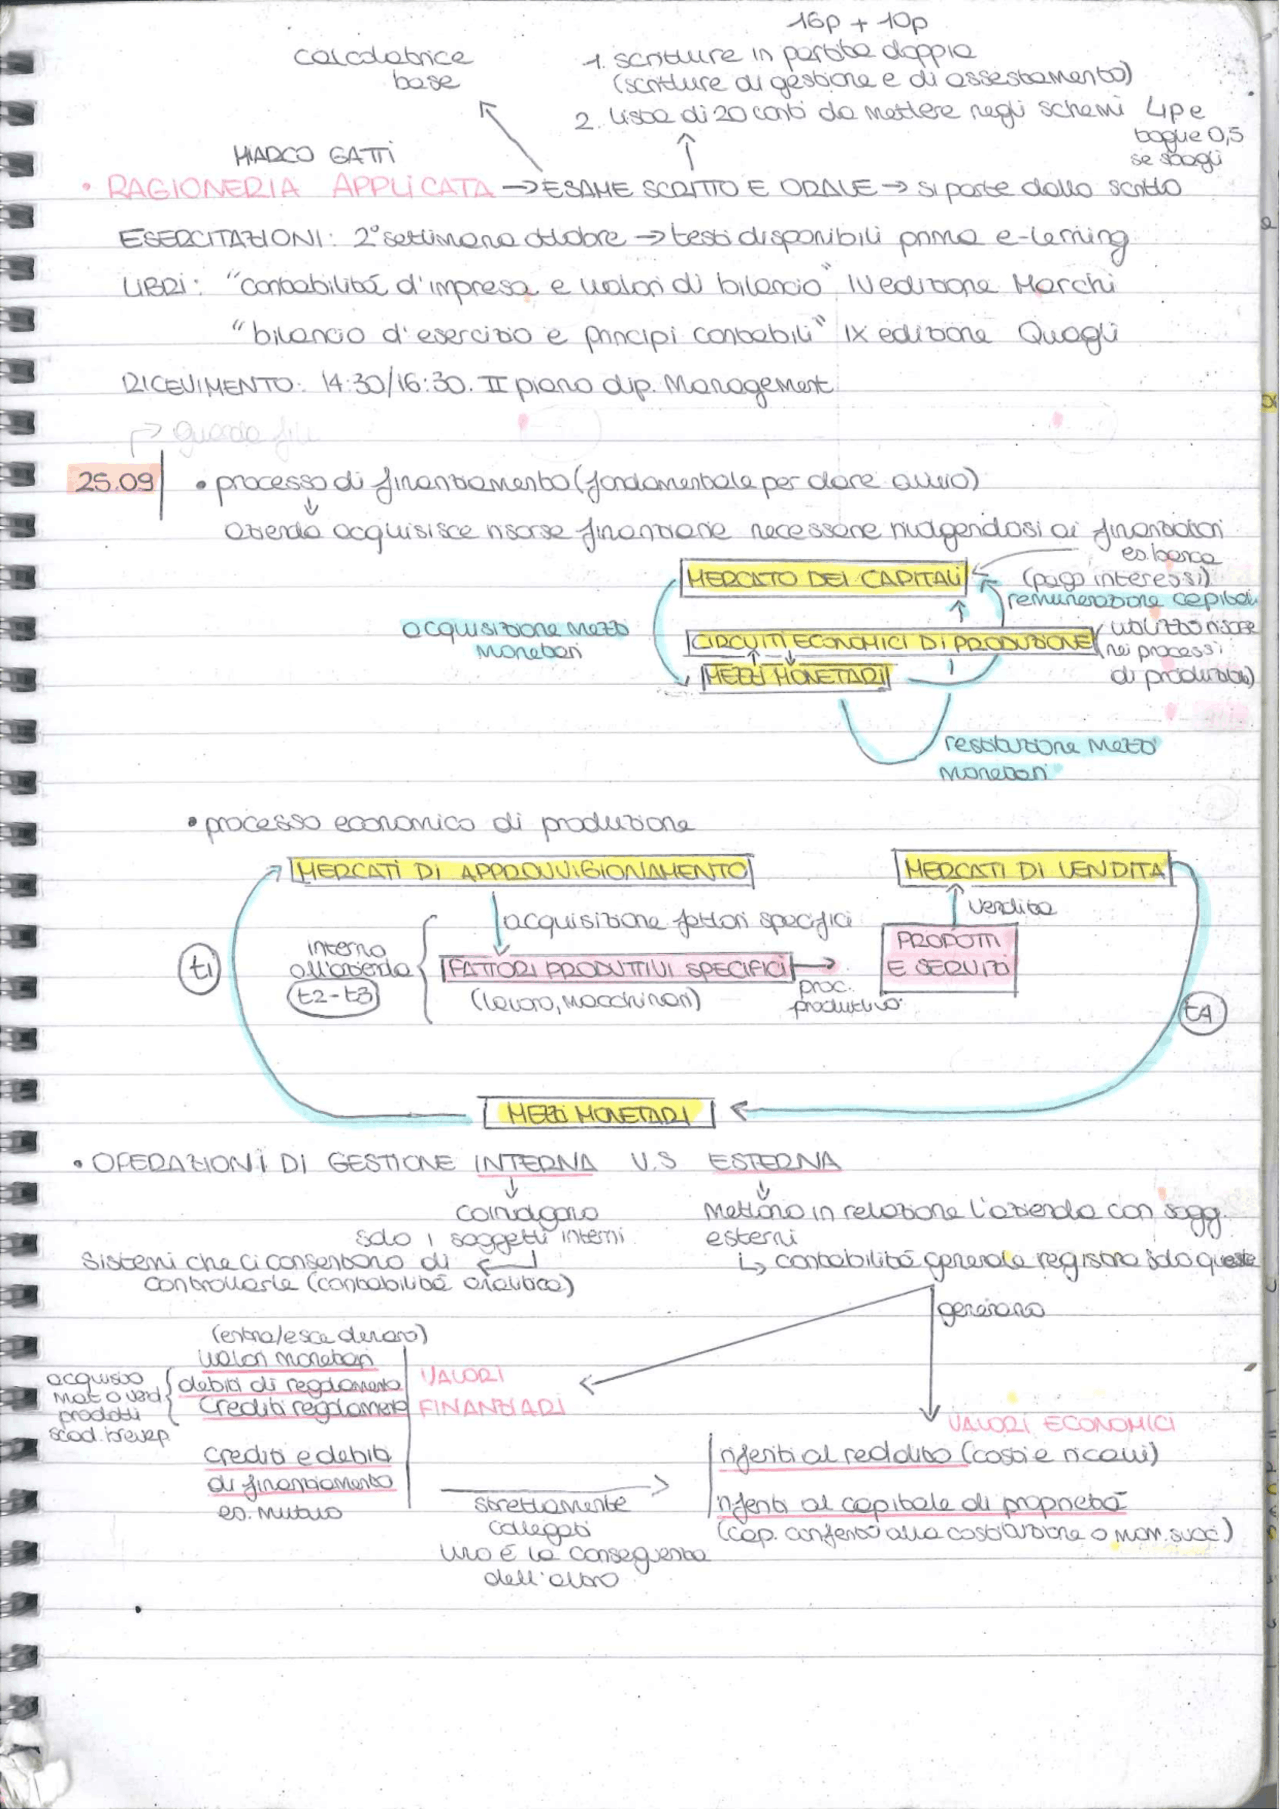 16p + 10p
calcolatrice
base
1. scritture in partita doppia
(scritture di gestione e di assestamento)
2. lista di 20 conti da mettere negli schemi
toglie 0,5
se sbagli
MARCO GATTI
• RAGIONERIA APPLICATA → ESAME SCRITTO E ORALE → si parte dallo scritto
ESERCITAZIONI: 2° settimana ottobre → testi disponibili prima e-lerning
LIBRI: "contabilità d'impresa e valori di bilancio" IV edizione Marchi
"bilancio d'esercizio e principi contabili" IX edizione Quagli
RICEVIMENTO: 14:30/16:30. II piano dip. Management
→ guarda file
25.09
• processo di finanziamento (fondamentale per dare avvio)
azienda acquisisce risorse finanziarie necessarie rivolgendosi ai finanziatori
es. banca
MERCATO DEI CAPITALI
(pago interessi)
remunerazione capitali
acquisizione mezzi
monetari
CIRCUITI ECONOMICI DI PRODUZIONE
(utilizzo risorse
nei processi
di produzione)
MEZZI MONETARI
restituzione mezzi
monetari
• processo economico di produzione
MERCATI DI APPROVVIGIONAMENTO
MERCATI DI VENDITA
acquisizione fattori specifici
vendita
interno
all'azienda
t2-t3
t1
FATTORI PRODUTTIVI SPECIFICI
(lavoro, macchinari)
proc.
produttivo
PRODOTTI
E SERVIZI
t4
MEZZI MONETARI
• OPERAZIONI DI GESTIONE INTERNA V.S ESTERNA
coinvolgono
solo i soggetti interni
Mettono in relazione l'azienda con sogg.
esterni
sistemi che ci consentono di
controllarle (contabilità analitica)
↳ contabilità generale registra solo queste
generano
(entra/esce denaro)
valori monetari
debiti di regolamento
crediti regolamento
VALORI
FINANZIARI
acquisto
mat o vend
prodotti
scad. brevep
crediti e debiti
di finanziamento
es. mutuo
strettamente
collegati
uno è la conseguenza
dell'altro
VALORI ECONOMICI
riferiti al reddito (costi e ricavi)
riferiti al capitale di proprietà
(cap. conferito alla costituzione o mom. succ.)